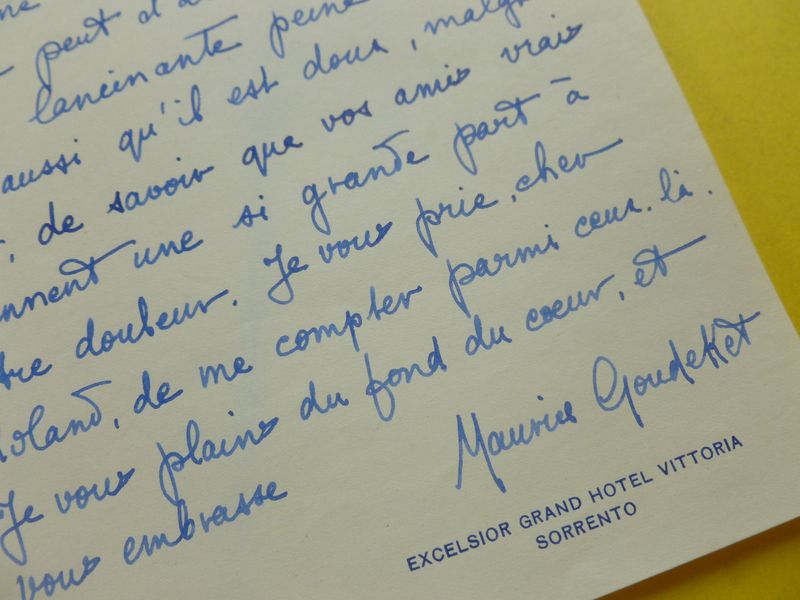 peut d
lancinante peine
aussi qu'il est doux, malgr
; de savoir que vos amis vrais
nnent une si grande part à
tre douleur. Je vous prie, cher
Roland, de me compter parmi ceux-là.
Je vous plains du fond du cœur, et
vous embrasse
Maurice Goudeket
EXCELSIOR GRAND HOTEL VITTORIA
SORRENTO